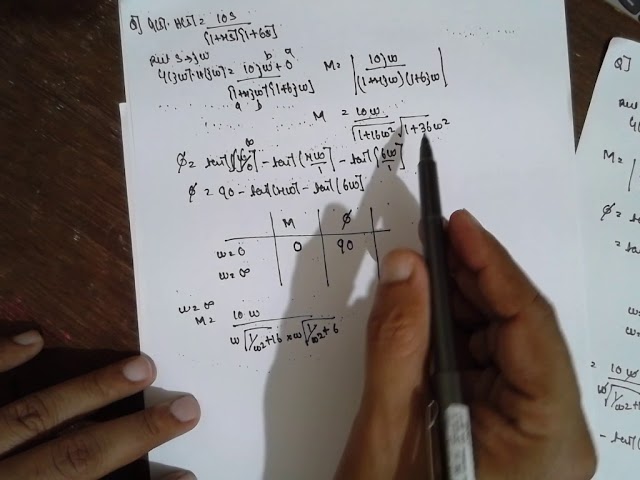 Q] G(s)·H(s) = 10s / [1+4s][1+6s]
Put s → jω
G(jω)·H(jω) = 10jω + 0 / [1+4jω][1+6jω]
b a
a b
M = | 10jω / (1+4jω)(1+6jω) |
M = 10ω / √1+16ω² √1+36ω²
∞
φ = tan⁻¹[10ω/0] − tan⁻¹(4ω/1) − tan⁻¹[6ω/1]
φ = 90 − tan⁻¹(4ω) − tan⁻¹[6ω]
M φ
ω=0 0 90
ω=∞
ω=∞
M = 10 ω / ω√1/ω²+16 × ω√1/ω²+6
Q]
Put
M =
φ =
=
= 10 ω
ω√1/ω²+1
− tan⁻¹(